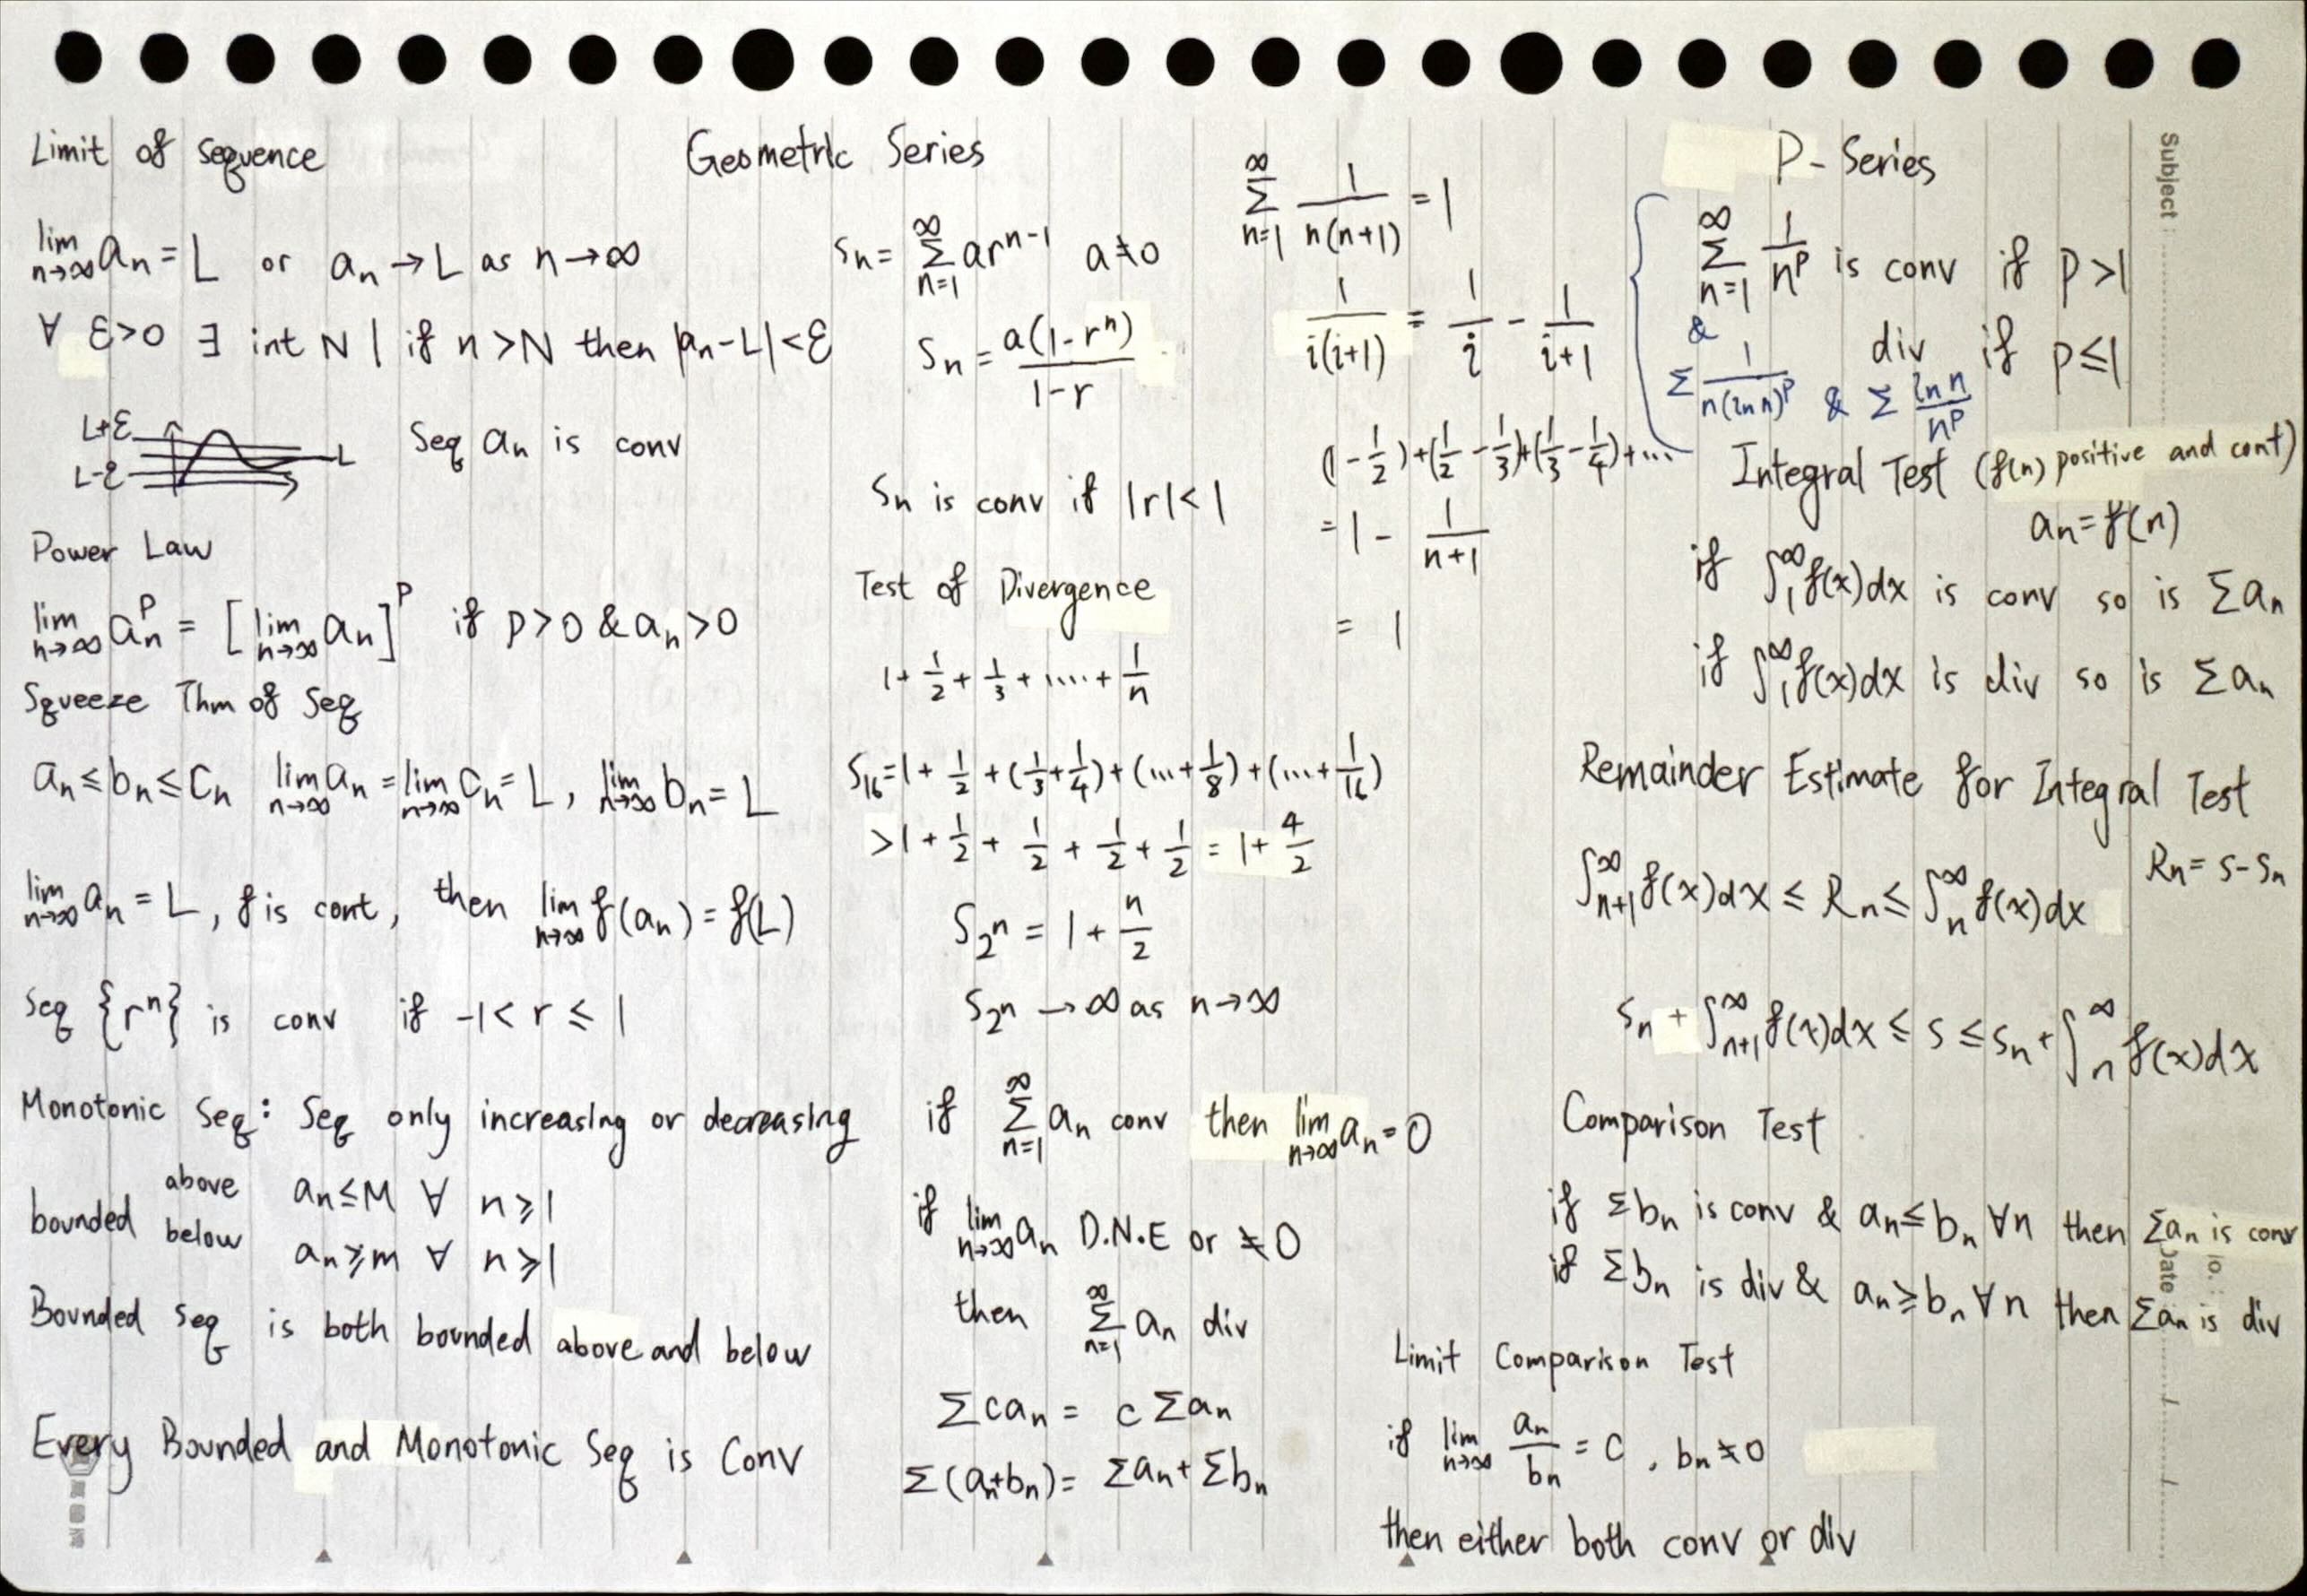 Limit of sequence
lim n→∞ aₙ = L or aₙ → L as n→∞
∀ ε>0 ∃ int N | if n>N then |aₙ-L|<ε
L+ε
L-ε
L
Seq aₙ is conv
Power Law
lim n→∞ aₙᵖ = [lim n→∞ aₙ]ᵖ if p>0 & aₙ>0
Squeeze Thm of Seq
aₙ≤bₙ≤cₙ lim n→∞ aₙ = lim n→∞ cₙ = L, lim n→∞ bₙ = L
lim n→∞ aₙ = L, f is cont, then lim n→∞ f(aₙ) = f(L)
Seq {rⁿ} is conv if -1< r ≤ 1
Monotonic Seq: Seq only increasing or decreasing
bounded
above aₙ≤M ∀ n≥1
below aₙ≥m ∀ n≥1
Bounded seq is both bounded above and below
Every Bounded and Monotonic Seq is Conv
Geometric Series
Sₙ = ∞ Σ n=1 arⁿ⁻¹ a≠0
Sₙ = a(1-rⁿ)/(1-r)
Sₙ is conv if |r|<1
Test of Divergence
1+ 1/2 + 1/3 + .... + 1/n
S₁₆=1+ 1/2 +(1/3+1/4)+(...+1/8)+(...+1/16)
>1+ 1/2 + 1/2 + 1/2 + 1/2 = 1+ 4/2
S₂ⁿ = 1+ n/2
S₂ⁿ → ∞ as n→∞
if ∞ Σ n=1 aₙ conv then lim n→∞ aₙ=0
if lim n→∞ aₙ D.N.E or ≠0
then ∞ Σ n=1 aₙ div
Σcaₙ = cΣaₙ
Σ(aₙ+bₙ)= Σaₙ+Σbₙ
∞ Σ n=1 1/(n(n+1)) = 1
1/(i(i+1)) = 1/i - 1/(i+1)
(1-1/2)+(1/2-1/3)+(1/3-1/4)+...
=1- 1/(n+1)
= 1
P-Series
∞ Σ n=1 1/nᵖ is conv if p>1
& div if p≤1
Σ 1/(n(ln n)ᵖ) & Σ ln n/nᵖ
Integral Test (f(n) positive and cont)
aₙ=f(n)
if ∫₁^∞ f(x)dx is conv so is Σaₙ
if ∫₁^∞ f(x)dx is div so is Σaₙ
Remainder Estimate for Integral Test
Rₙ= s-sₙ
∫ₙ₊₁^∞ f(x)dx ≤ Rₙ ≤ ∫ₙ^∞ f(x)dx
sₙ + ∫ₙ₊₁^∞ f(x)dx ≤ s ≤ sₙ + ∫ₙ^∞ f(x)dx
Comparison Test
if Σbₙ is conv & aₙ≤bₙ ∀n then Σaₙ is conv
if Σbₙ is div & aₙ≥bₙ ∀n then Σaₙ is div
Limit Comparison Test
if lim n→∞ aₙ/bₙ = C, bₙ≠0
then either both conv or div
Subject :